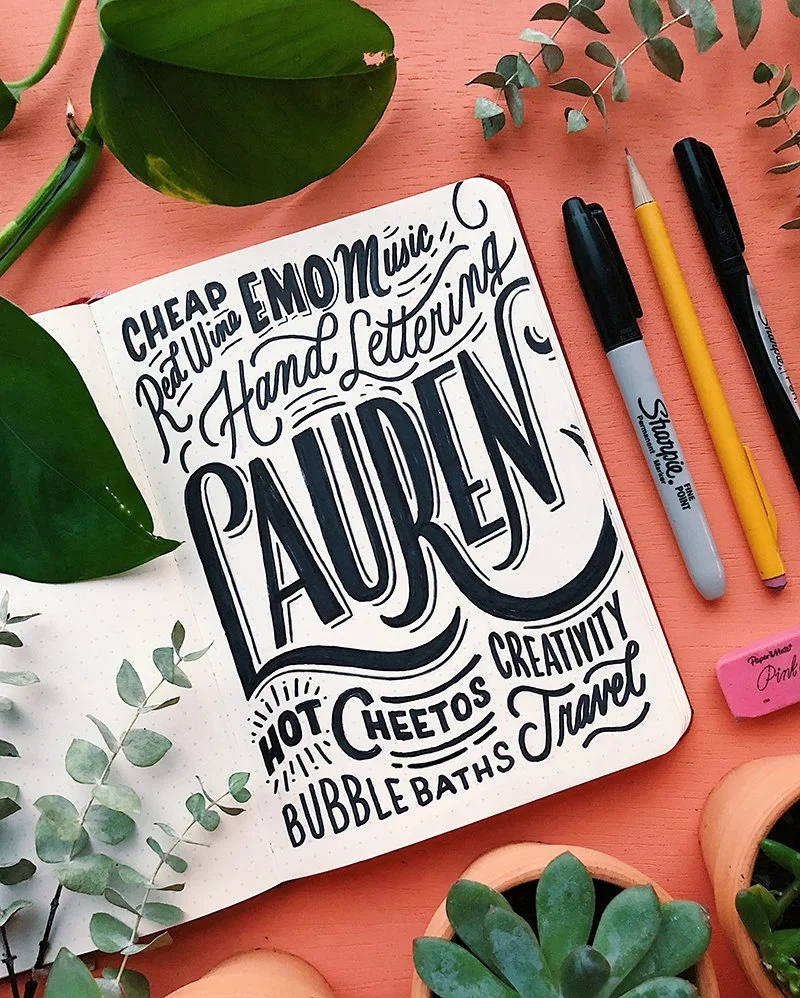 CHEAP EMO Music
Red Wine
Hand Lettering
LAUREN
HOT CHEETOS CREATIVITY
BUBBLE BATHS Travel
Sharpie
Permanent Marker
FINE
POINT
Sharpie
Paper Mate
Pink